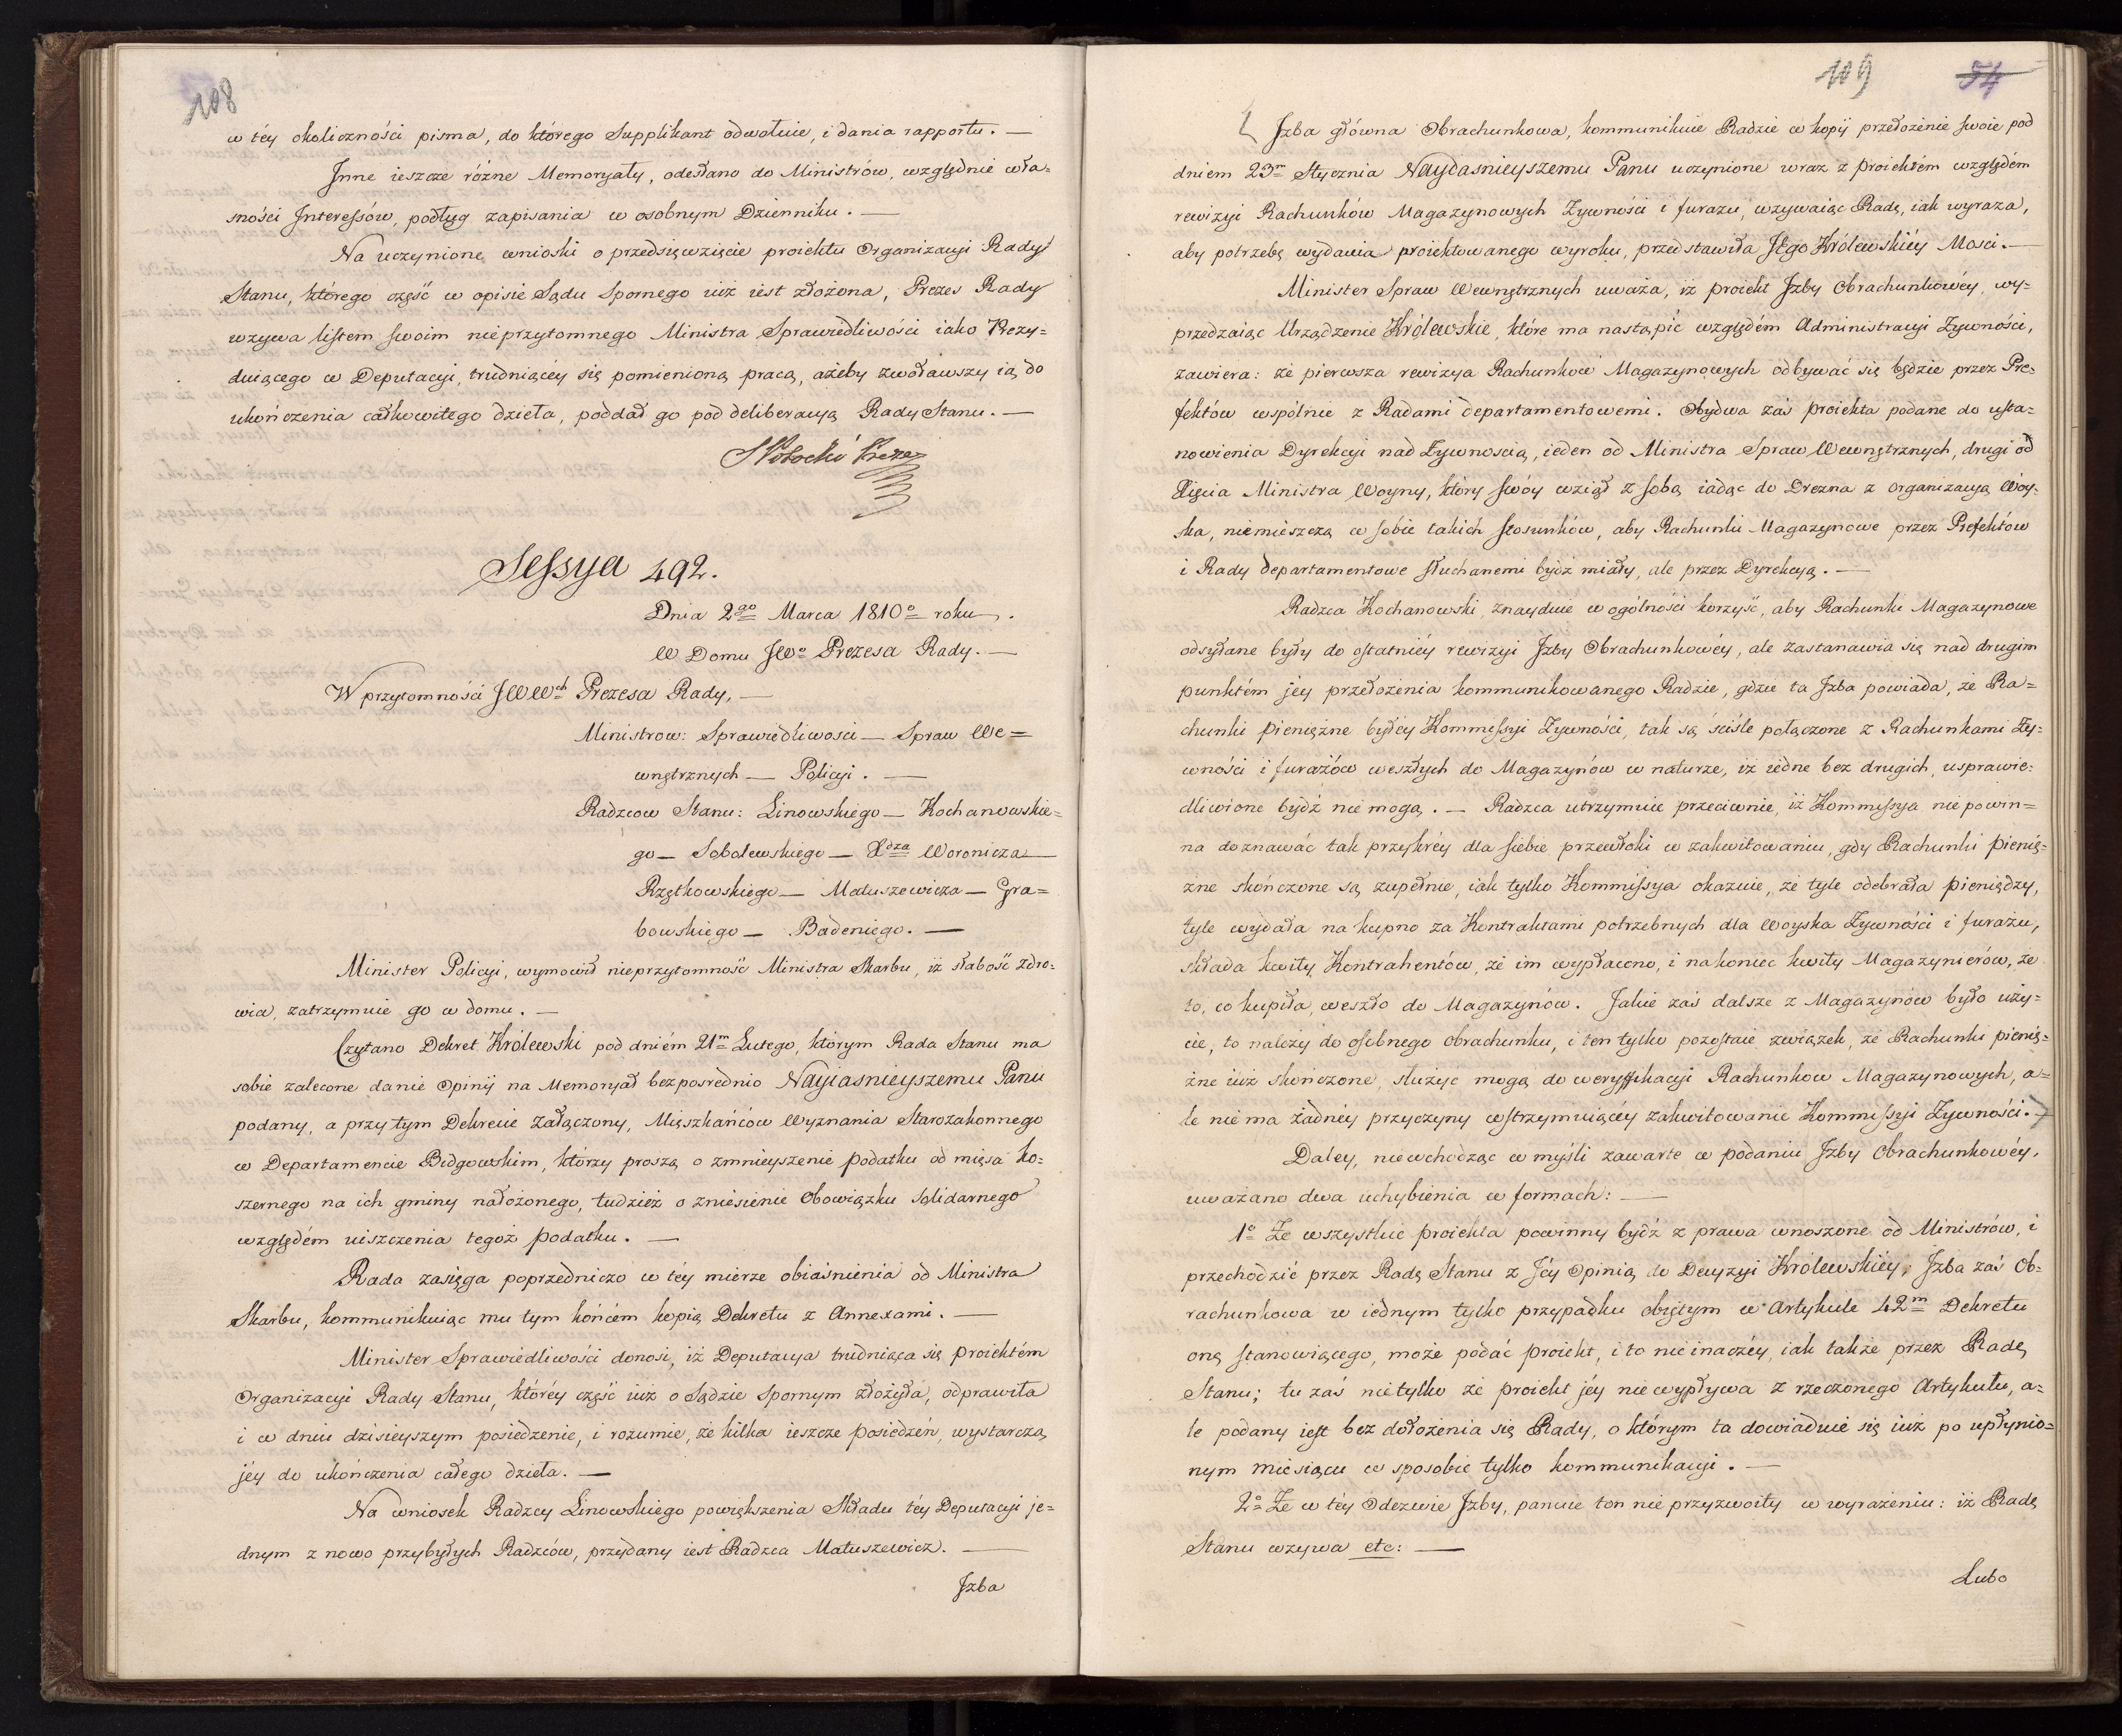 108
w téy okoliczności pisma, do którego Supplikant odwołuie, i dania rapportu. —
Jnne ieszcze różne Memoryały, odesłano do Ministrów, względnie wła=
sności Jnteressów, podług zapisania w osobnym Dzienniku. —
Na uczynione wnioski o przedsięwzięcie proiektu Organizacyi Rady
Stanu, którego część w opisie Sądu Spornego iuż iest złożona, Prezes Rady
wzywa listem swoim nieprzytomnego Ministra Sprawiedliwości iako Prezy=
duiącego w Deputacyi, trudniącéy się pomienioną pracą, ażeby zwoławszy ią do
ukończenia całkowitego dzieła, poddał go pod deliberacyą Rady Stanu. —
SPotocki Prezes
Sessya 492.
Dnia 2go Marca 1810o roku.
W Domu JWo Prezesa Rady. —
W przytomności JWWch Prezesa Rady, —
Ministrow: Sprawiedliwosci — Spraw We=
wnętrznych — Policyi. —
Radzcow Stanu: Linowskiego — Kochanowskie=
go — Sobolewskiego — Xdza Woronicza —
Rzętkowskiego — Matuszewicza — Gra=
bowskiego — Badeniego. —
Minister Policyi, wymowił nieprzytomność Ministra Skarbu, iż słabość zdro=
wia, zatrzymuie go w domu. —
Czytano Dekret Królewski pod dniém 21m Lutego, którym Rada Stanu ma
sobie zalecone danie Opinij na Memoryał bezposrednio Nayiasnieyszemu Panu
podany, a przy tym Dekrecie załączony, Mięszkańców Wyznania Starozakonnego
w Departamencie Bidgowskim, którzy proszą o zmnieyszenie podatku od mięsa ko=
szernego na ich gminy nałożonego, tudzież o zniesienie Obowiązku Solidarnego
względém uiszczenia tegoż podatku. —
Rada zasięga poprzedniczo w téy mierze obiaśnienia od Ministra
Skarbu, kommunikuiąc mu tym końcém kopią Dekretu z Annexami. —
Minister Sprawiedliwości donosi, iż Deputacya trudniąca się proiektém
Organizacyi Rady Stanu, któréy część iuż o Sądzie Spornym złożyła, odprawiła
i w dniu dzisieyszym posiedzenie, i rozumie, że kilka ieszcze posiedzeń, wystarczą
jéy do ukończenia całego dzieła. —
Na wniosek Radzcy Linowskiego powiększenia Składu téy Deputacyi je=
dnym z nowo przybyłych Radzców, przydany iest Radzca Matuszewicz. —
Jzba
109 54
Jzba główna Obrachunkowa, kommunikuie Radzie w kopij przełożenie swoie pod
dniem 23m Stycznia Nayiasnieyszemu Panu uczynione wraz z proiektém względém
rewizyi Rachunków Magazynowych Zywności i furazu, wzywaiąc Radę, iak wyraza,
aby potrzebę wydania proiektowanego wyroku, przedstawiła JEgo Królewskiéy Mosci. —
Minister Spraw Wewnętrznych uważa, iż proiekt Jzby Obrachunkowéy, wy=
przedzaiąc Urządzenie Królewskie, które ma nastąpić względém Administracyi Zywności,
zawiera: że pierwsza rewizya Rachunków Magazynowych odbywać się będzie przez Pre=
fektów wspólnie z Radami departamentowemi. Obydwa zaś proiekta podane do usta=
nowienia Dyrekcyi nad Zywnoscią, ieden od Ministra Spraw Wewnętrznych, drugi od
Xięcia Ministra Woyny, który swóy wziął z sobą iadąc do Drezna z organizacyą Woy=
ska, niemieszczą w sobie takich stosunków, aby Rachunki Magazynowe przez Prefektów
i Rady departamentowe słuchanemi bydź miały, ale przez Dyrekcyą. —
Radzca Kochanowski, znayduie w ogólności korzyść, aby Rachunki Magazynowe
odsyłane były do ostatniéy rewizyi Jzby Obrachunkowéy, ale zastanawia się nad drugim
punktém jey przełożenia kommunikowanego Radzie, gdzie ta Jzba powiada, że Ra=
chunki pieniężne byłéy Kommissyi Zywności, tak są ściśle połączone z Rachunkami Zy=
wności i furażów weszłych do Magazynów w naturze, iż iedne bez drugich, usprawie=
dliwione bydź nie mogą. — Radzca utrzymuie przeciwnie, iż Kommissya nie powin=
na doznawać tak przykréy dla siebie przewłoki w zakwitowaniu, gdy Rachunki pienię=
żne skończone są zupełnie, iak tylko Kommissya okazuie, że tyle odebrała pieniędzy,
tyle wydała na kupno za Kontraktami potrzebnych dla Woyska Zywności i furażu,
składa kwity Kontrahentów, że im wypłacono, i nakoniec kwity Magazynierów, że
to, co kupiła, weszło do Magazynów. Jakie zaś dalsze z Magazynów było uży=
cie, to należy do osobnego obrachunku, i ten tylko pozostaie związek, że Rachunki pienię=
żne iuż skończone, służyc mogą do weryfikacyi Rachunkow Magazynowych, a=
le nie ma żadnéy przyczyny wstrzymuiącéy zakwitowanie Kommissyi Zywności. —
Daley, niewchodząc w myśli zawarte w podaniu Jzby Obrachunkowéy,
uważano dwa uchybienia w formach: —
1o Ze wszystkie proiekta powinny bydź z prawa wnoszone od Ministrów, i
przechodzić przez Radę Stanu z Jéy Opinią do Decyzyi Królewskiéy; Jzba zaś Ob=
rachunkowa w iednym tylko przypadku obiętym w Artykule 42m Dekretu
onę stanowiącego, może podać proiekt, i to nie inaczéy, iak także przez Radę
Stanu; tu zaś nietylko że proiekt jéy nie wypływa z rzeczonego Artykułu, a=
le podany iest bez dołożenia się Rady, o którym ta dowiaduie się iuż po upłynio=
nym miesiącu w sposobie tylko kommunikacyi. —
2o Ze w téy Odezwie Jzby, panuie ton nie przyzwoity w wyrażeniu: iż Radę
Stanu wzywa etc: —
Lubo